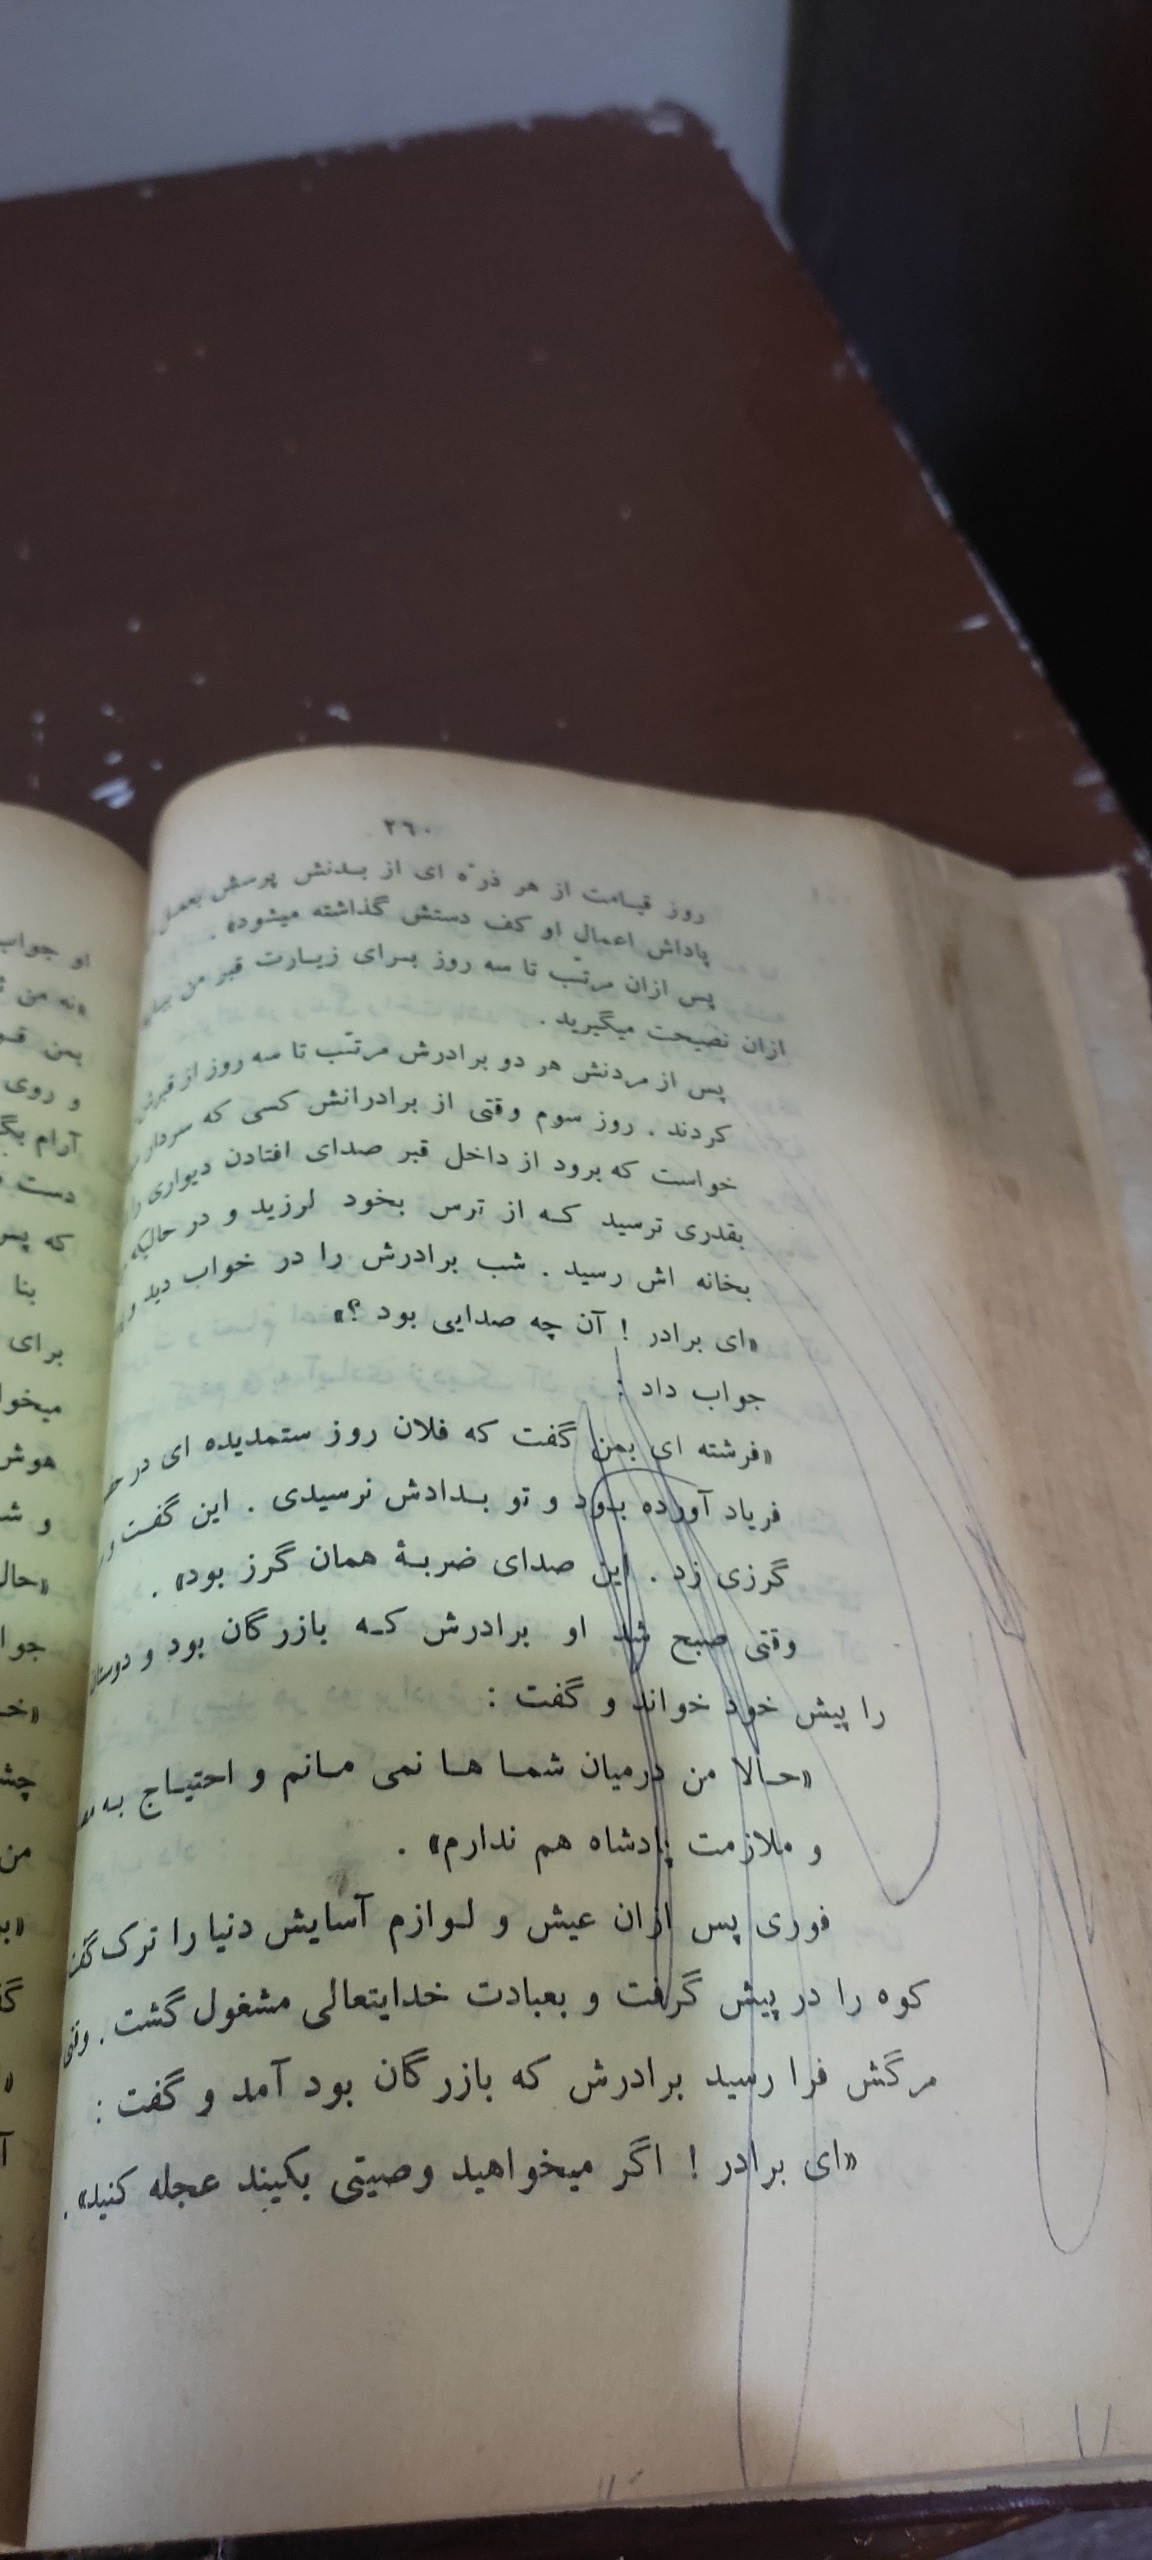 ٢٦٠
روز قیامت از هر ذرّه ای از بدنش پرسش بعمل
پاداش اعمال او کف دستش گذاشته میشود» .
پس ازان مرتّب تا سه روز برای زیارت قبر من
ازان نصیحت میگیرید .
پس از مردنش هر دو برادرش مرتّب تا سه روز از قبرش
کردند . روز سوم وقتی از برادرانش کسی که سردار
خواست که برود از داخل قبر صدای افتادن دیواری را
بقدری ترسید که از ترس بخود لرزید و در حالیکه
بخانه اش رسید . شب برادرش را در خواب دید و
«ای برادر ! آن چه صدایی بود ؟»
جواب داد :
«فرشته ای بمن گفت که فلان روز ستمدیده ای در
فریاد آورده بود و تو بدادش نرسیدی . این گفت و
گرزی زد . این صدای ضربهٔ همان گرز بود» .
وقتی صبح شد او برادرش که بازرگان بود و دوستان
را پیش خود خواند و گفت :
«حالا من درمیان شما ها نمی مانم و احتیاج به
و ملازمت پادشاه هم ندارم» .
فوری پس ازان عیش و لوازم آسایش دنیا را ترک
کوه را در پیش گرفت و بعبادت خدایتعالی مشغول گشت . وقتی
مرگش فرا رسید برادرش که بازرگان بود آمد و گفت :
«ای برادر ! اگر میخواهید وصیتی بکیند عجله کنید» .
او جواب
«نه من
بمن
و روی
آرام
دست
که پس
بنا
برای
هوش
و
من